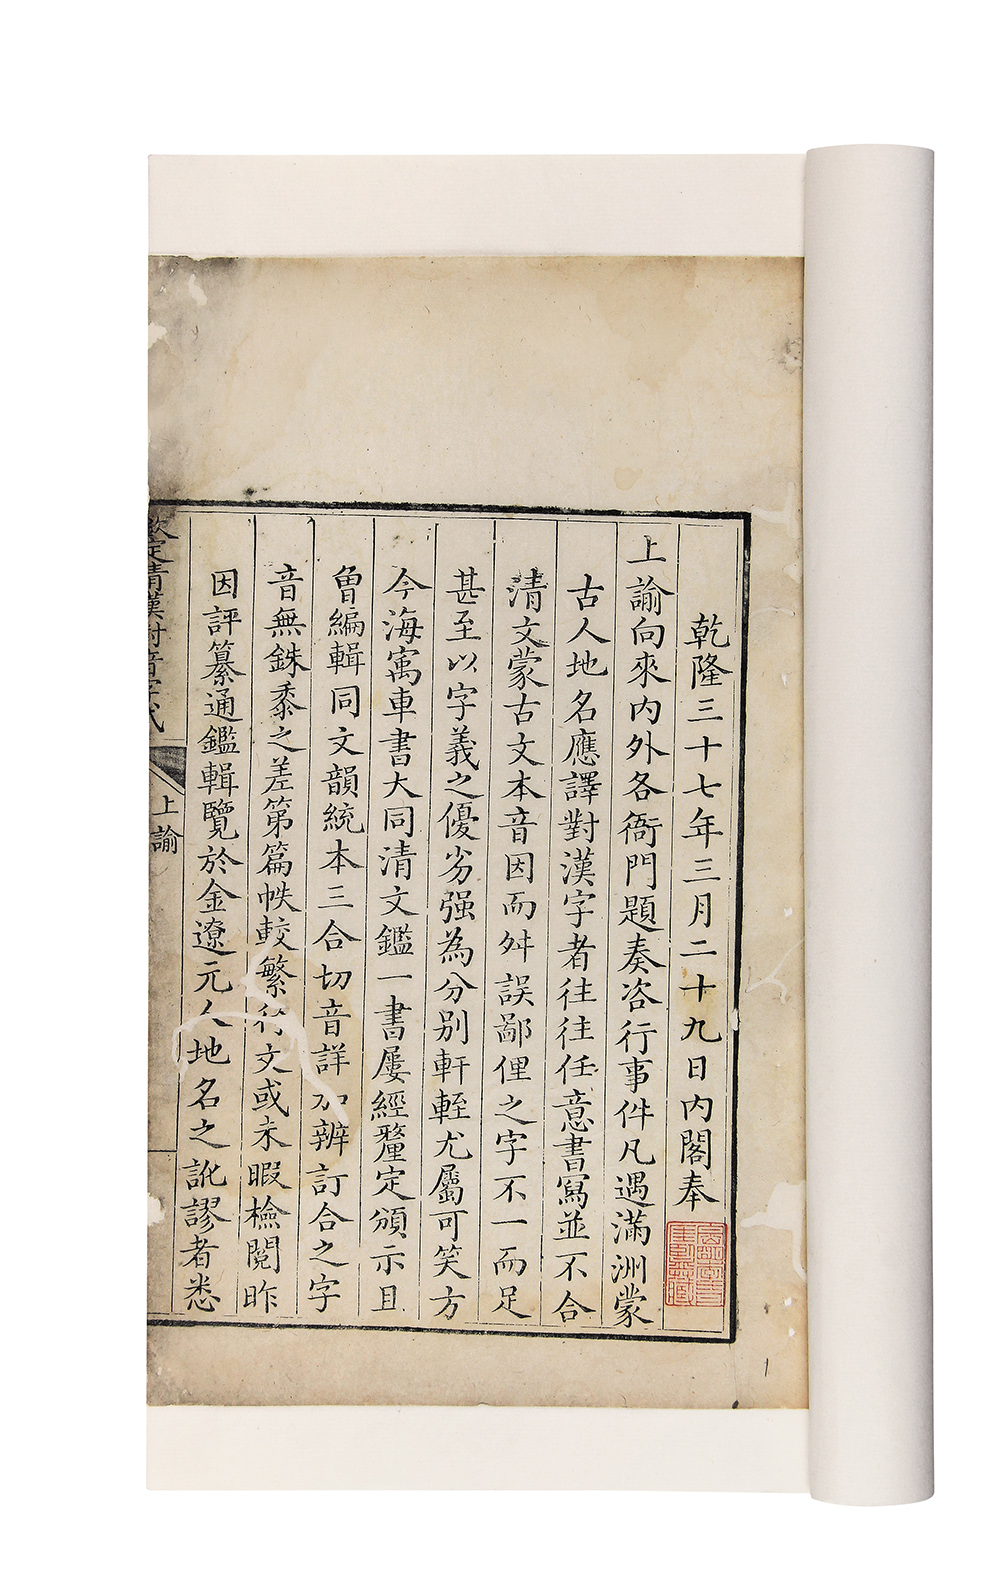 乾隆三十七年三月二十九日內閣奉
上諭向來內外各衙門題奏咨行事件凡遇滿洲蒙
古人地名應譯對漢字者往往任意書寫並不合
清文蒙古文本音因而舛誤鄙俚之字不一而足
甚至以字義之優劣强為分別軒輊尤屬可笑方
今海㝢車書大同清文鑑一書屢經釐定頒示且
曾編輯同文韻統本三合切音詳加辨訂合之字
音無銖黍之差第篇帙較繁行文或未暇檢閱昨
因評纂通鑑輯覽於金遼元人地名之訛謬者悉
欽定清漢對音字式
上諭
1